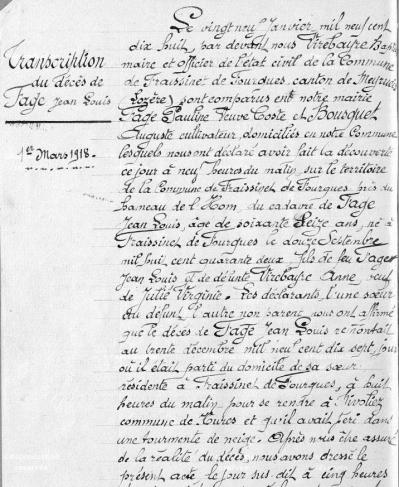 Transcription
du décès de
Fage Jean Louis
1er Mars 1918.
Le vingt neuf Janvier mil neuf cent
dix huit, par devant nous Virebayre
maire et officier de l'état civil de la Commune
de Fraissinet de Fourques, canton de Meyrueis
(Lozère) sont comparus en notre mairie
Fage Pauline Veuve Coste et Bousquet
Auguste cultivateur, domiciliés en notre Commune
lesquels nous ont déclaré avoir fait la découverte
ce jour à neuf heures du matin, sur le territoire
de la Commune de Fraissinet de Fourques, près du
hameau de l'Hom, du cadavre de Fage
Jean Louis, âge de soixante seize ans, né à
Fraissinet de Fourques le douze Septembre
mil huit cent quarante deux, fils de feu Fages
Jean Louis et de défunte Virebayre Anne, veuf
de Julié Virginie. Les déclarants, l'une sœur
du défunt l'autre non parent, nous ont affirmé
que le décès de Fage Jean Louis remontait
au trente décembre mil neuf cent dix sept, jour
où il était parti du domicile de sa sœur
résidente à Fraissinet de Fourques, à huit
heures du matin pour se rendre à Nivoliez
commune de Hures et qu'il avait péri dans
une tourmente de neige. Après nous être assuré
de la réalité du décès, nous avons dressé le
présent acte le jour sus dit à cinq heures